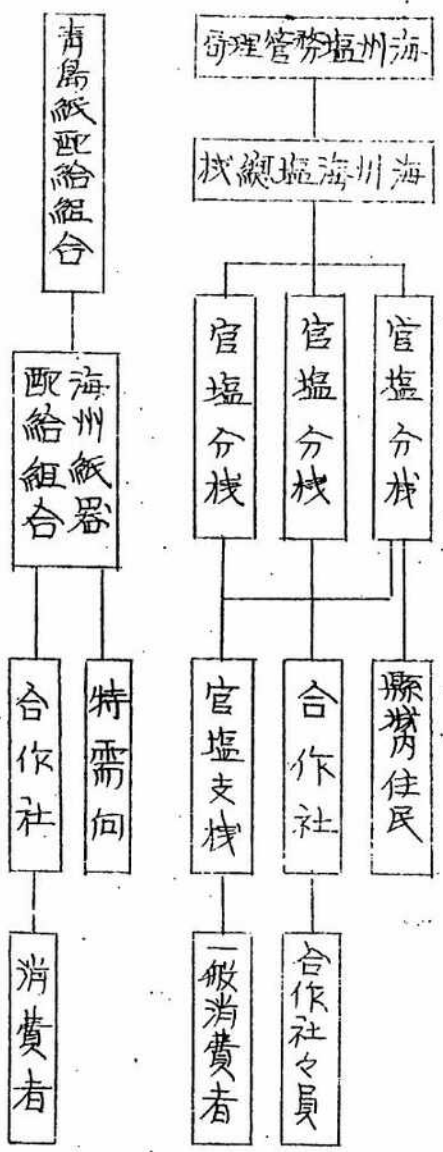 海州塩務管理司
海州海塩總桟
官塩分桟
官塩分桟
官塩分桟
縣城内住民
合作社
官塩支桟
合作社々員
一般消費者
青島紙配給組合
海州紙器
配給組合
特需向
合作社
消費者